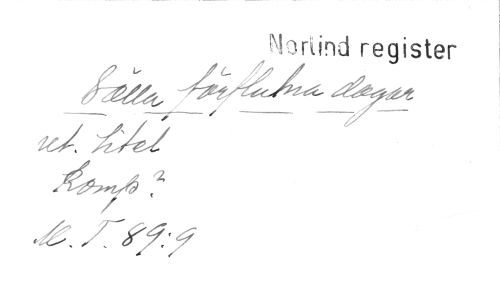 Norlind register
Sälla förflutna dagar
ret. titel
Komp?
M. T. 89:9